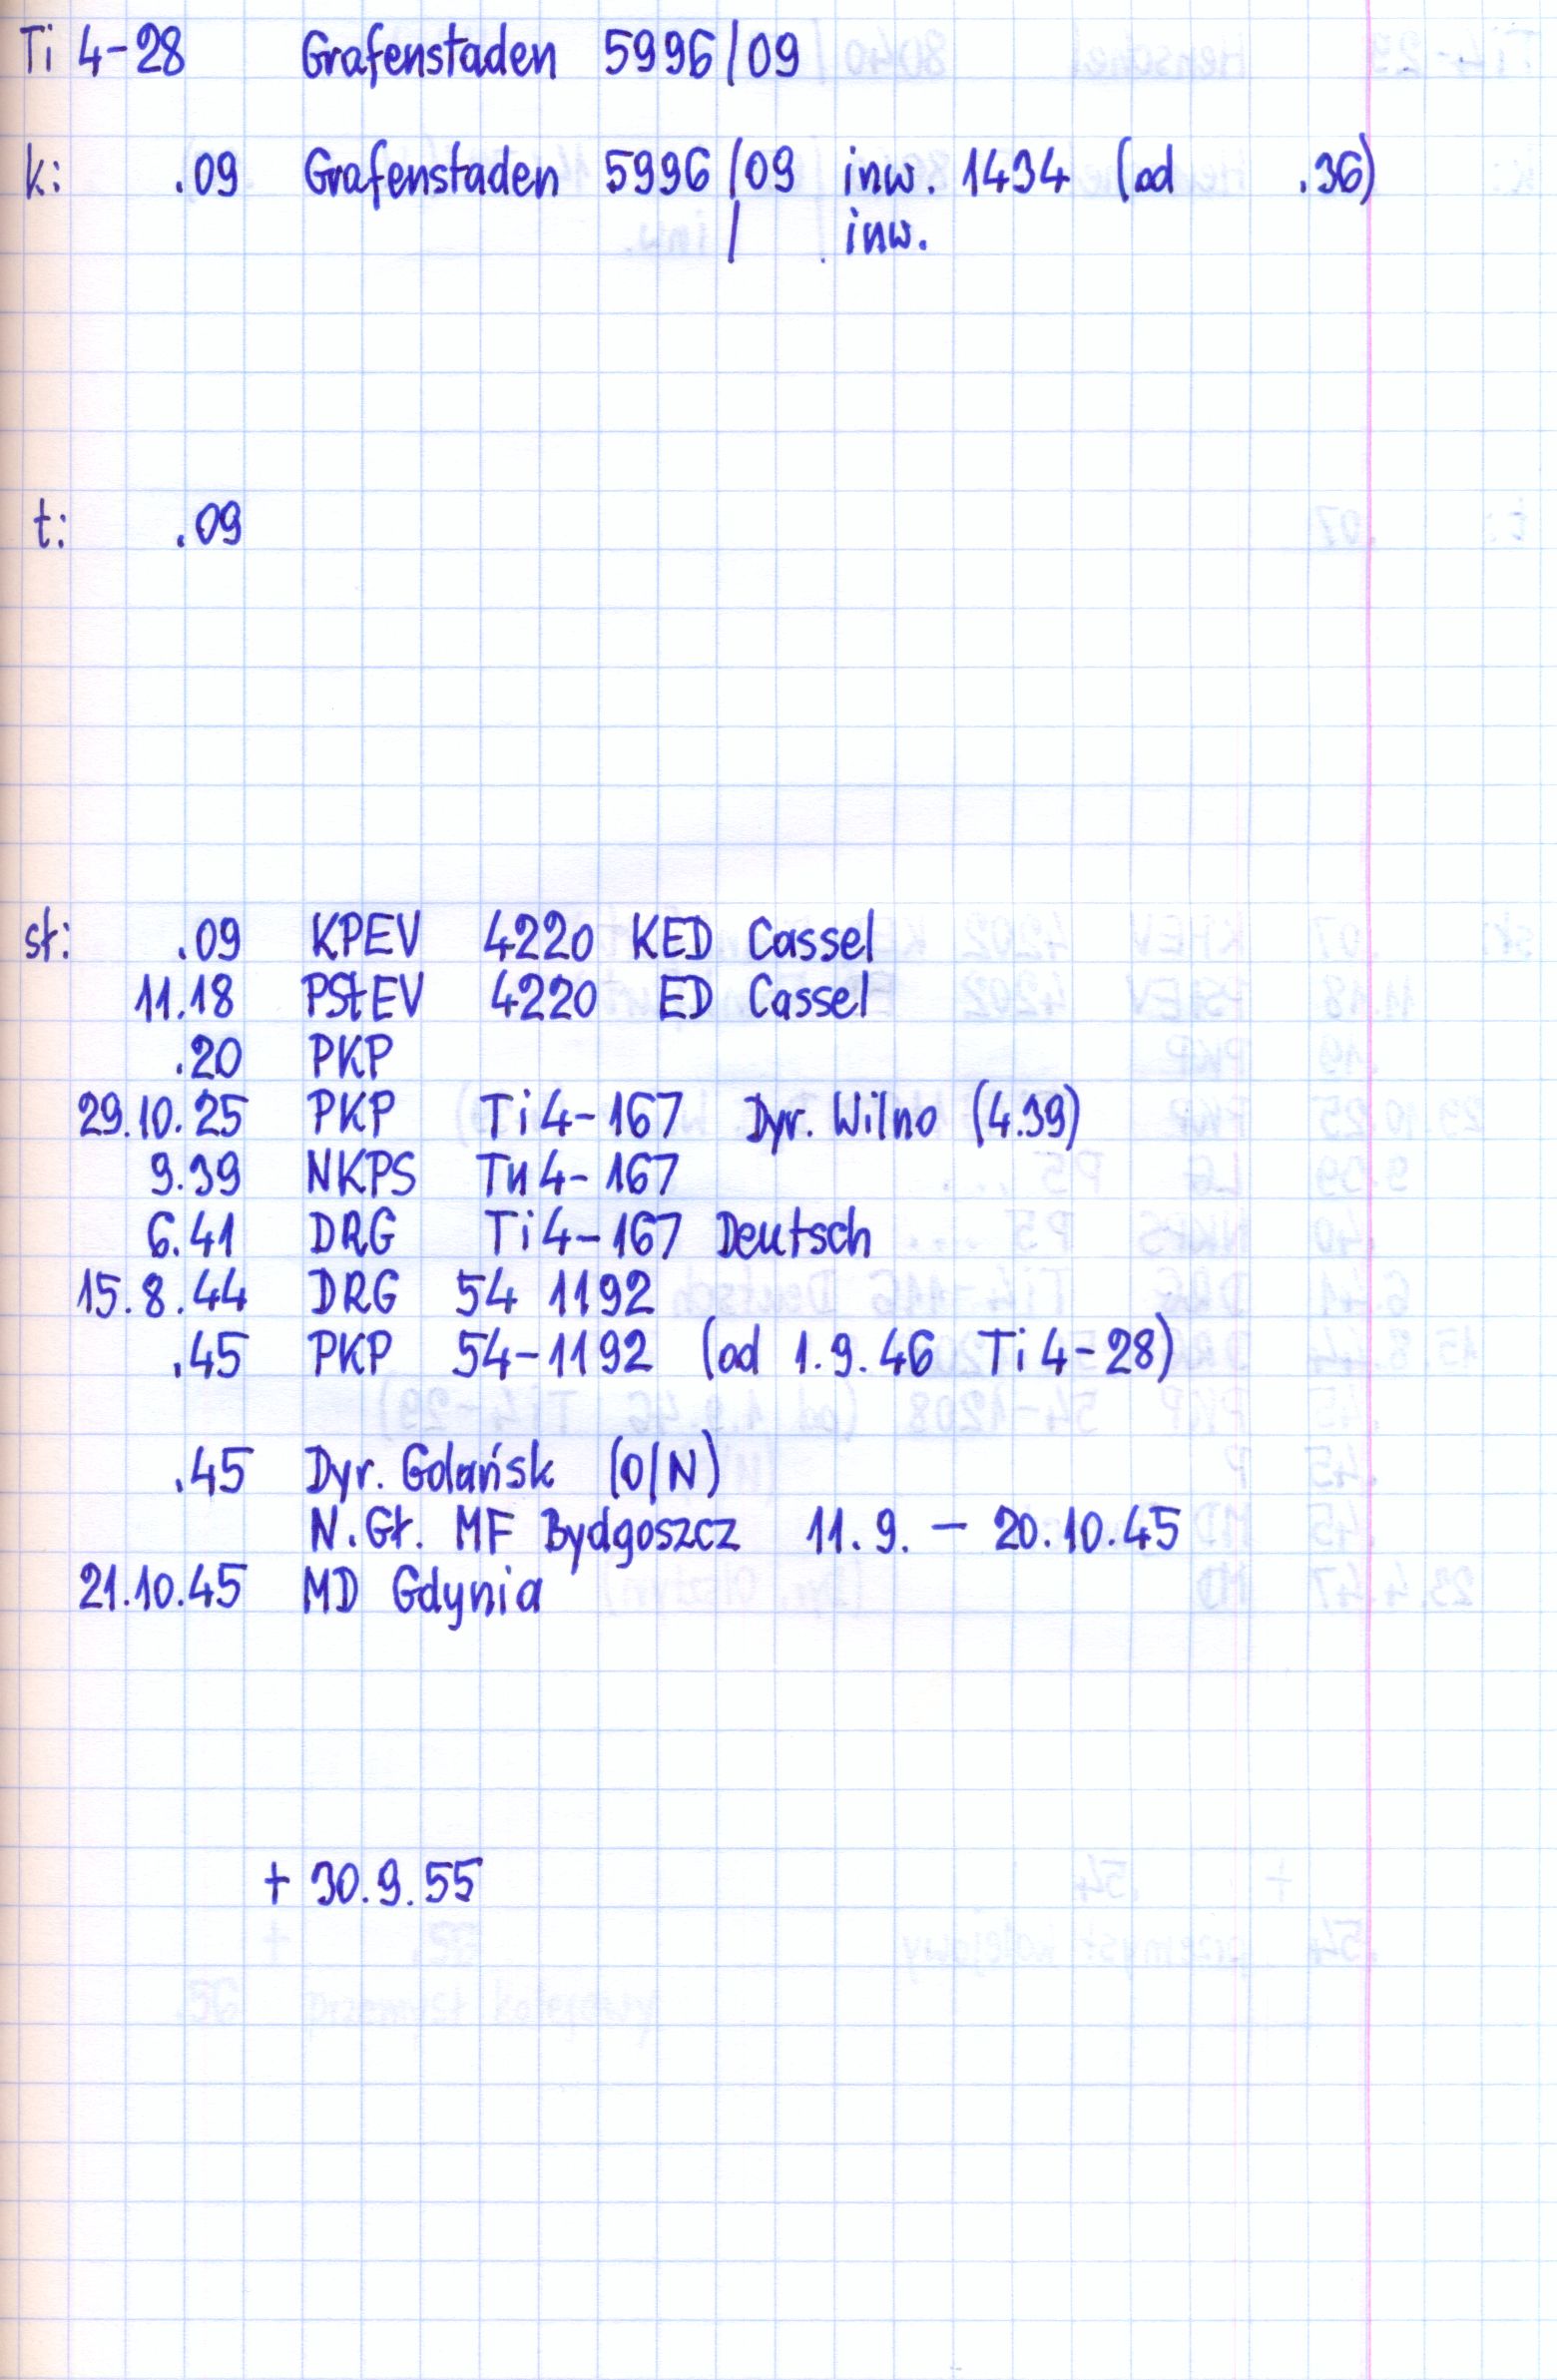 Ti 4-28 Grafenstaden 5996/09
k: .09 Grafenstaden 5996/09 inw. 1434 (od .36)
/ inw.
t: .09
st: .09 KPEV 4220 KED Cassel
11.18 PStEV 4220 ED Cassel
.20 PKP
29.10.25 PKP Ti4-167 Dyr. Wilno (4.39)
9.39 NKPS Tи4-167
6.41 DRG Ti4-167 Deutsch
15.8.44 DRG 54 1192
.45 PKP 54-1192 (od 1.9.46 Ti4-28)
.45 Dyr. Gdańsk (O/N)
N.Gł. MF Bydgoszcz 11.9. - 20.10.45
21.10.45 MD Gdynia
+ 30.9.55